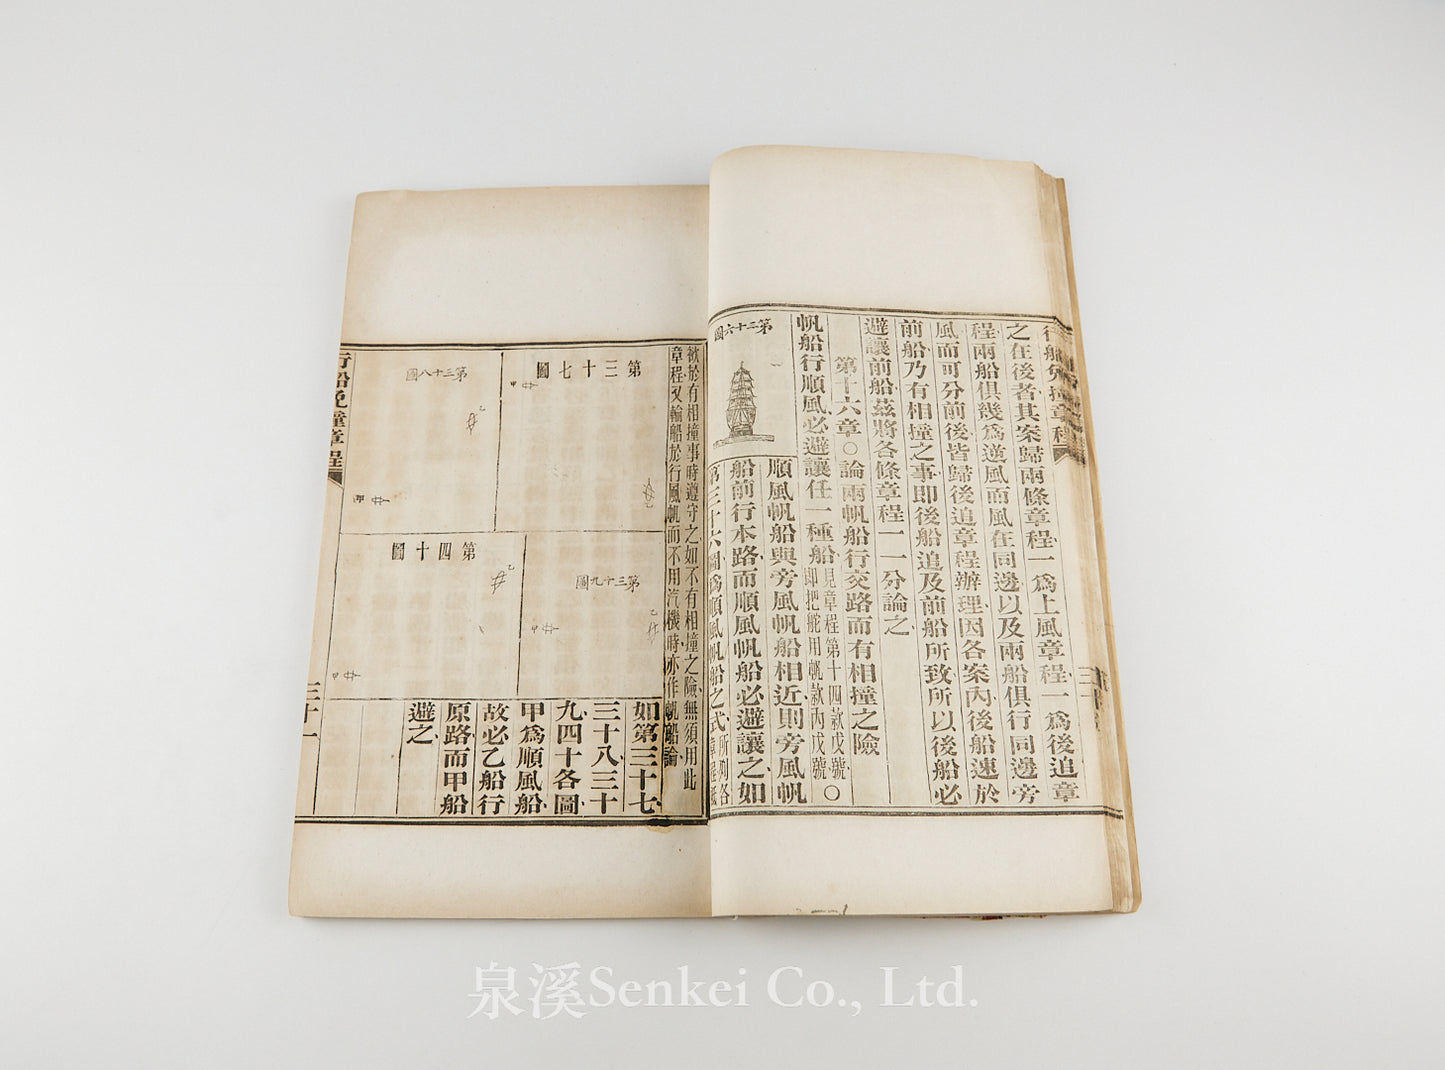 行船免撞章程
之在後者其案歸兩條章程一爲上風章程一爲後追章
程兩船俱幾爲逆風而風在同邊以及兩船俱行同邊旁
風而可分前後皆歸後追章程辦理因各案內後船速於
前船乃有相撞之事即後船追及前船所致所以後船必
避讓前船茲將各條章程一一分論之
第十六章○論兩帆船行交路而有相撞之險
帆船行順風必避讓任一種船見章程第十四款戊號即把舵用帆款丙戊號○
第三十六圖
順風帆船與旁風帆船相近則旁風帆
船前行本路而順風帆船必避讓之如
第三十六圖爲順風帆船之式所列各章程
欲於有相撞事時遵守之如不有相撞之險無須用此
章程又輪船於行風帆而不用汽機時亦作帆船論
第三十七圖
甲
乙
第三十八圖
乙
甲
第三十九圖
乙
甲
第四十圖
乙
甲
如第三十七
三十八三十
九四十各圖
甲爲順風船
故必乙船行
原路而甲船
避之
行船免撞章程
三十一
泉溪Senkei Co., Ltd.